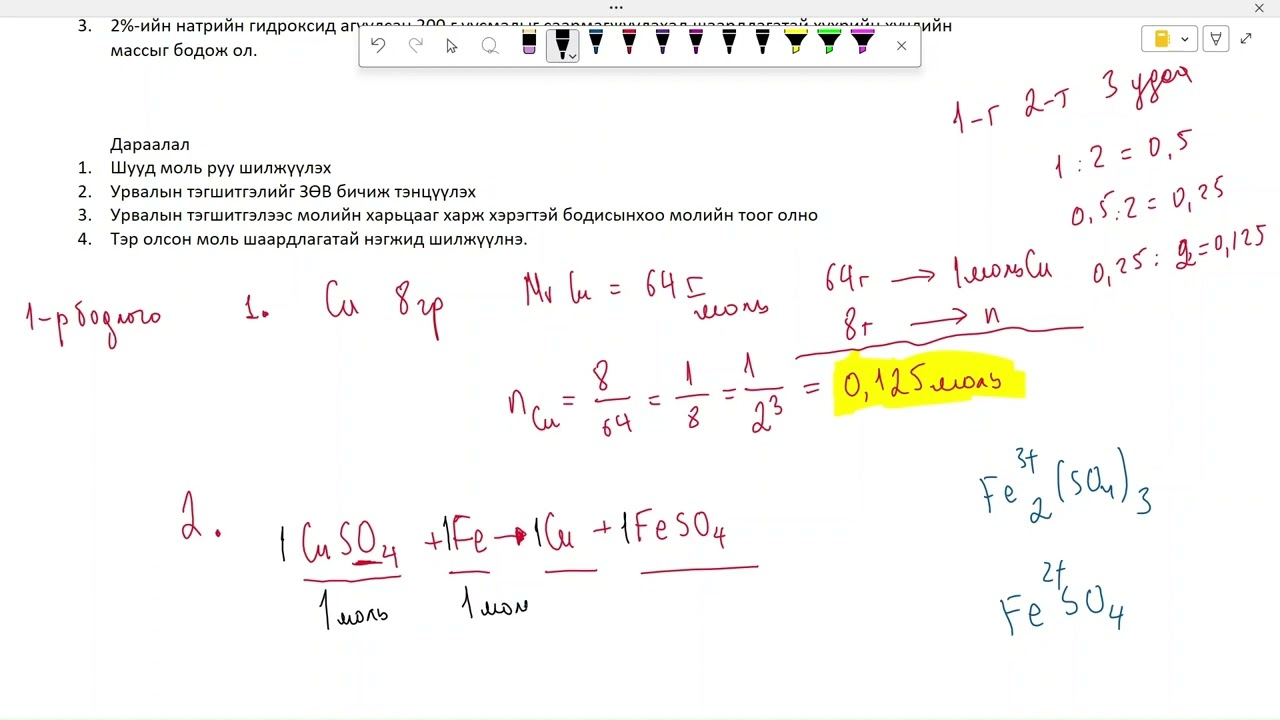 3. 2%-ийн натрийн гидроксид агуулсан 200 г уусмалыг саармагжуулахад шаардлагатай хүхрийн хүчлийн
массыг бодож ол.
Дараалал
1. Шууд моль руу шилжүүлэх
2. Урвалын тэгшитгэлийг ЗӨВ бичиж тэнцүүлэх
3. Урвалын тэгшитгэлээс молийн харьцааг харж хэрэгтэй бодисынхоо молийн тоог олно
4. Тэр олсон моль шаардлагатай нэгжид шилжүүлнэ.
1-г 2-т 3 удаа
1 : 2 = 0,5
0,5 : 2 = 0,25
0,25 : 2 = 0,125
1-р бодлого
1. Cu 8гр Mr Cu = 64 г/моль
64г → 1моль Cu
8г → n
n Cu = 8/64 = 1/8 = 1/2³ = 0,125 моль
Fe₂³⁺(SO₄)₃
2. 1CuSO₄ + 1Fe → 1Cu + 1FeSO₄
1моль 1мол
Fe²⁺SO₄